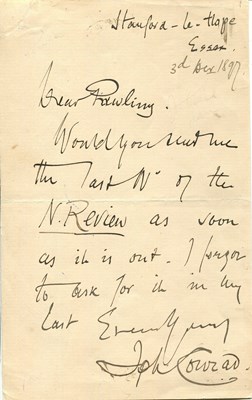 Stanford-le-Hope
Essex.
3d Dec 1897
Dear Pawling.
Would you send me
the last No of the
N. Review as soon
as it is out. I forgot
to ask for it in my
last Ever Yours
Jph Conrad.